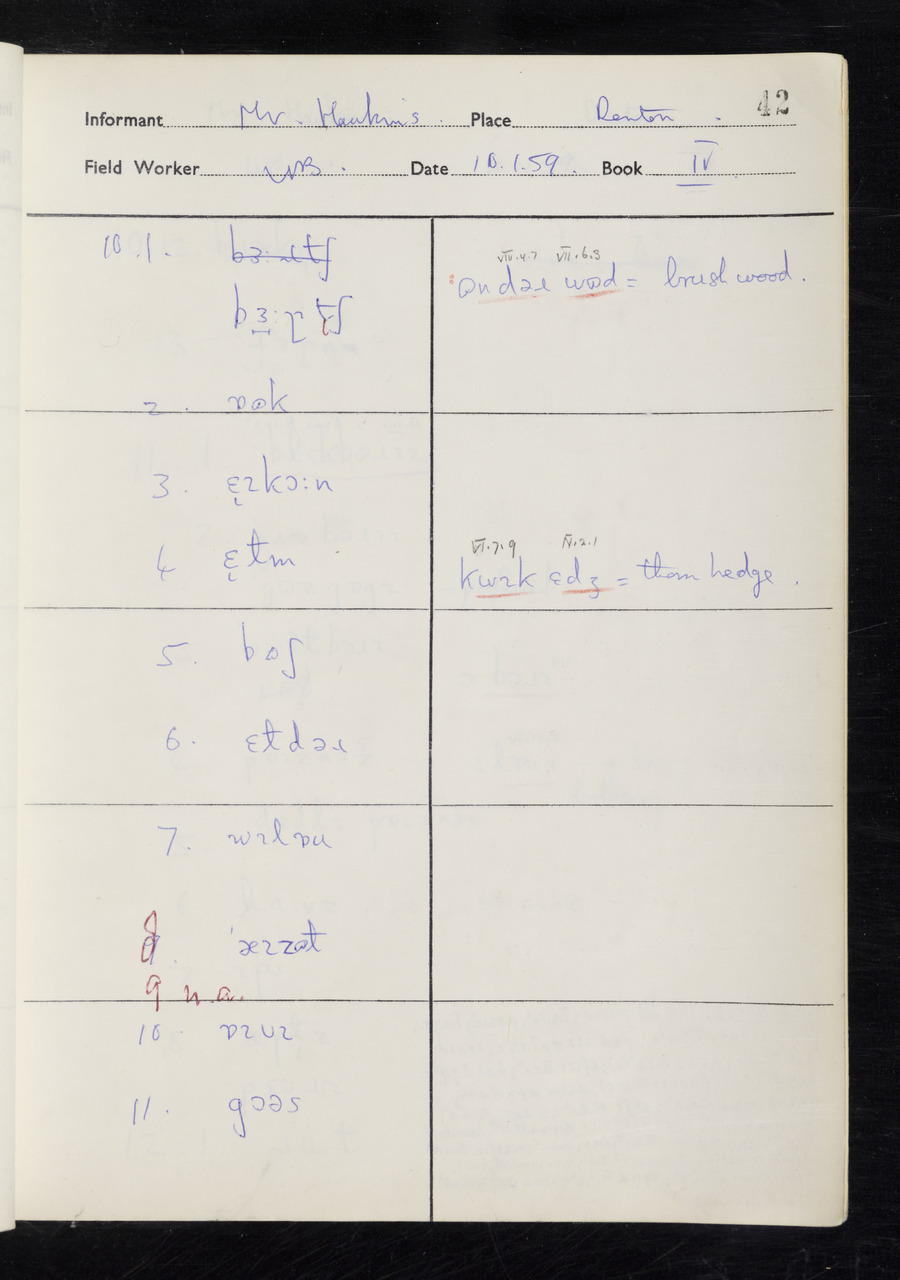 42
Informant Mr. Hawkins. Place Renton.
Field Worker WB. Date 10.1.59. Book IV
10.1.
VIII.4.7 VII.6.3
ɒndəɪ wɒd = brush wood.
2. ɒək
3. ɛɪkɔ:n
4 ɛtm
VI.7.9 IV.2.1
kwɪk ɛdʒ = thorn hedge.
5. bɒʃ
6. ɛtdəɪ
7. wɪlɒu
8.
9 n.a.
10. ɒɪvɪ
11. gɔəs